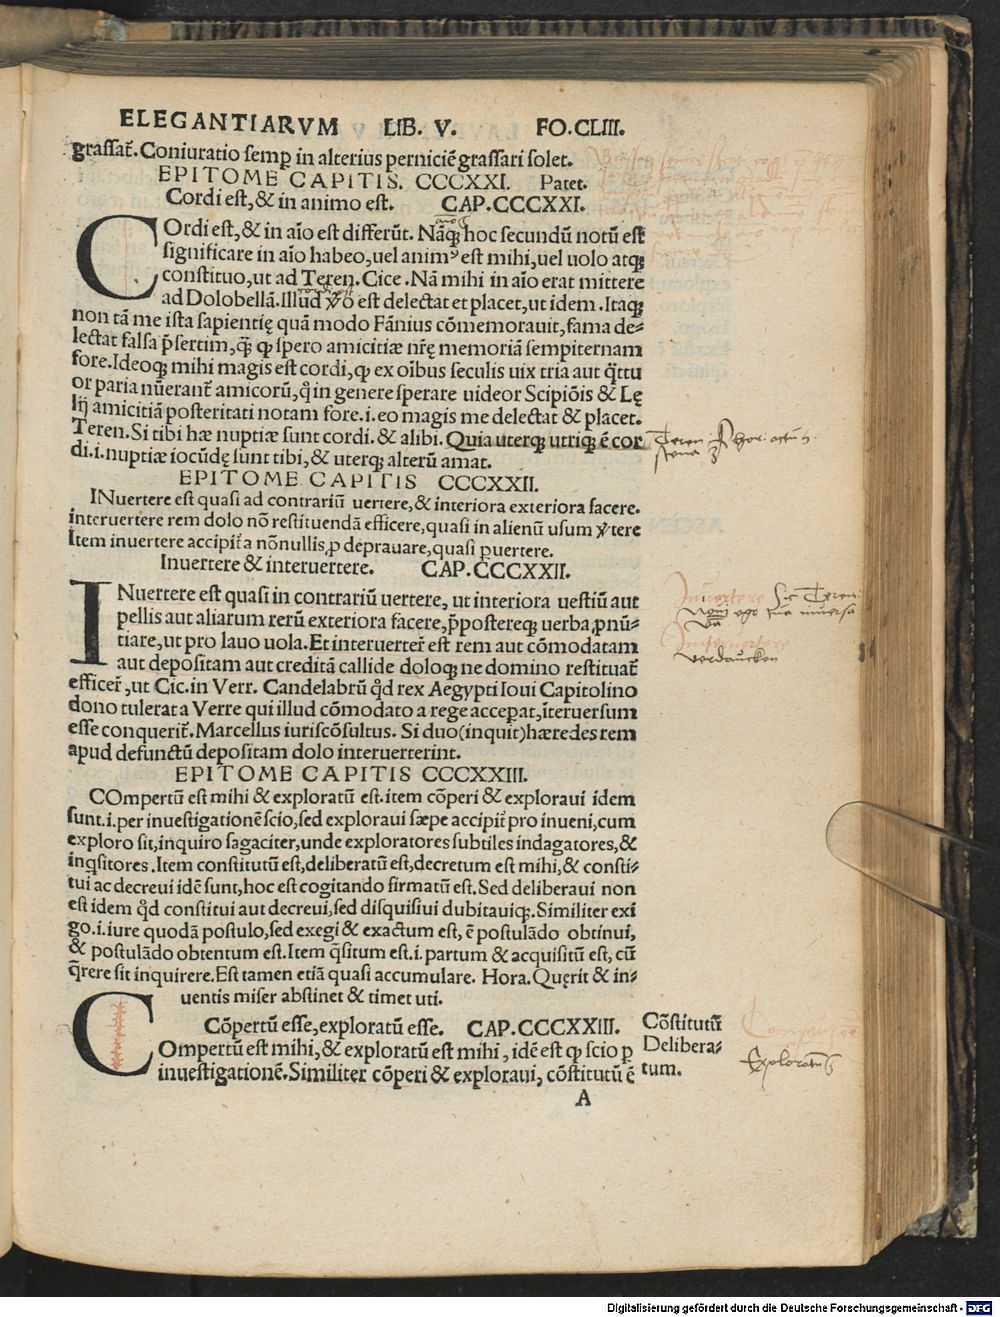 ELEGANTIARVM LIB. V. FO.CLIII.
grassat̃. Coniuratio semꝑ in alterius perniciẽ grassari solet.
EPITOME CAPITIS. CCCXXI. Patet.
Cordi est, & in animo est. CAP.CCCXXI.
COrdi est, & in aĩo est differũt. Nãqꝫ hoc secundũ notũ est
significare in aĩo habeo, uel animꝰ est mihi, uel uolo atqꝫ
constituo, ut ad Teren. Cice. Nã mihi in aĩo erat mittere
ad Dolobellã. Illud ꝟo est delectat et placet, ut idem. Itaqꝫ
non tã me ista sapientię quã modo Fãnius cõmemorauit, fama de⸗
lectat falsa p̃sertim, q̃ ꝙ spero amicitiæ nr̃ę memoriã sempiternam
fore. Ideoqꝫ mihi magis est cordi, ꝙ ex oĩbus seculis uix tria aut q̃ttu
or paria nũerant̃ amicorũ, q̃ in genere sperare uideor Scipiõis & Lę
lij amicitiã posteritati notam fore. i. eo magis me delectat & placet.
Teren. Si tibi hæ nuptiæ sunt cordi. & alibi. Quia uterqꝫ utriqꝫ ẽ cor
di. i. nuptiæ iocũdę sunt tibi, & uterqꝫ alterũ amat.
EPITOME CAPITIS CCCXXII.
INuertere est quasi ad contrariũ uertere, & interiora exteriora facere.
interuertere rem dolo nõ restituendã efficere, quasi in alienũ usum ꝟtere
Item inuertere accipit̃ a nõnullis, ꝓ deprauare, quasi ꝑuertere.
Inuertere & interuertere. CAP.CCCXXII.
INuertere est quasi in contrariũ uertere, ut interiora uestiũ aut
pellis aut aliarum rerũ exteriora facere, p̃postereqꝫ uerba ꝓnũ⸗
tiare, ut pro lauo uola. Et interuerter̃ est rem aut cõmodatam
aut depositam aut creditã callide doloqꝫ ne domino restituat̃
efficer̃, ut Cic. in Verr. Candelabrũ q̃d rex Aegypti Ioui Capitolino
dono tulerat a Verre qui illud cõmodato a rege acceperat, ĩteruersum
esse conquerit̃. Marcellus iuriscõsultus. Si duo (inquit) hæredes rem
apud defunctũ depositam dolo interuerterint.
EPITOME CAPITIS CCCXXIII.
COmpertũ est mihi & exploratũ est. item cõperi & exploraui idem
sunt. i. per inuestigationẽ scio, sed exploraui sæpe accipit̃ pro inueni, cum
exploro sit, inquiro sagaciter, unde exploratores subtiles indagatores, &
inq̃sitores. Item constitutũ est, deliberatũ est, decretum est mihi, & consti⸗
tui ac decreui idẽ sunt, hoc est cogitando firmatũ est. Sed deliberaui non
est idem q̃d constitui aut decreui, sed disquisiui dubitauiqꝫ. Similiter exi
go. i. iure quodã postulo, sed exegi & exactum est, ẽ postulãdo obtinui,
& postulãdo obtentum est. Item q̃situm est. i. partum & acquisitũ est, cũ
q̃rere sit inquirere. Est tamen etiã quasi accumulare. Hora. Quęrit & in⸗
uentis miser abstinet & timet uti.
Cõpertũ esse, exploratũ esse. CAP.CCCXXIII.
COmpertũ est mihi, & exploratũ est mihi, idẽ est ꝙ scio ꝑ
inuestigationẽ. Similiter cõperi & exploraui, cõstitutũ ẽ
Cõstitutũ
Delibera⸗
tum.
A
Teren: Phor: actu
scena 3
Inuertere Sic Teren:
ego tua inuersa
Exploratus
Digitalisierung gefördert durch die Deutsche Forschungsgemeinschaft - DFG